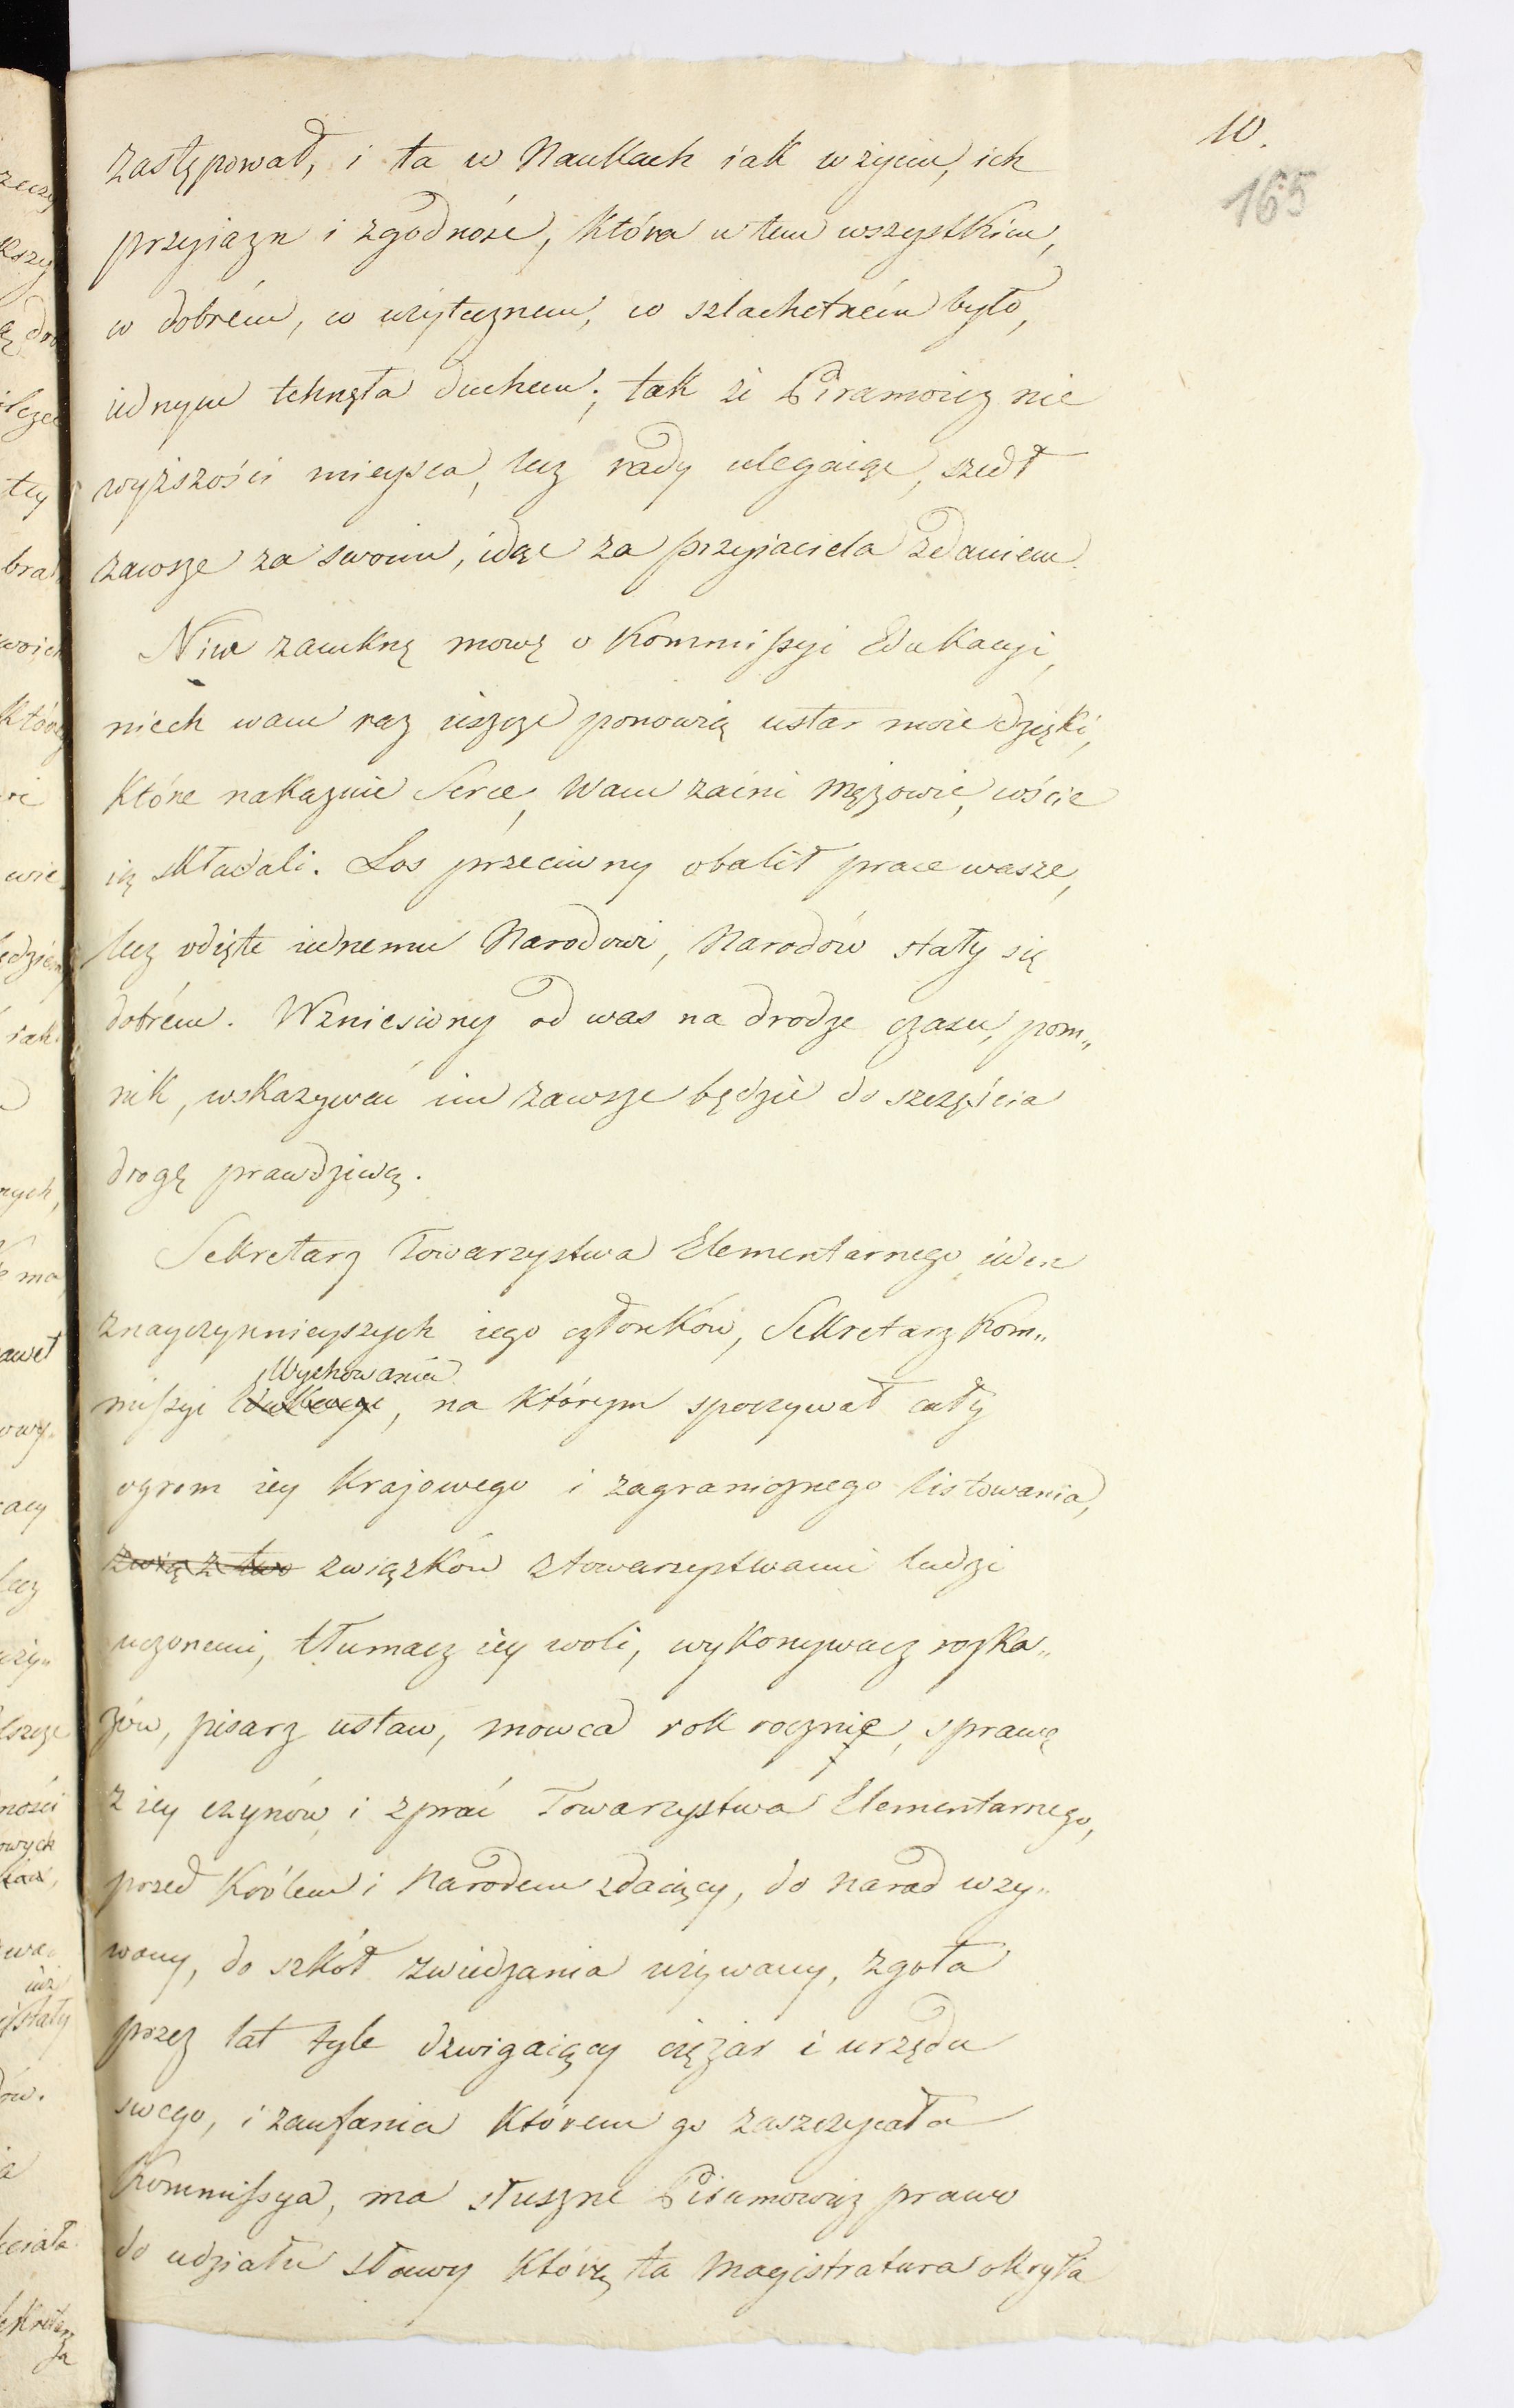 10.
165
zastępował, i ta w Naukach iak w życiu, ich
przyiazn i zgodność, która w tem wszystkiem,
w dobrém, w użytecznem, w szlachetném było,
iednym tchnęła duchem; tak że Piramowicz nie
wyższości mieysca, lecz rady ulegaiąc, szedł
zawsze za swoim, idąc za przyiaciela zdaniem.
Nim zamknę mowę o Kommissyi Edukacyi,
niech wam raz ieszcze ponowią usta moie dzięki,
które nakazuie Serce, Wam zacni mężowie, coście
ią składali. Los przeciwny obalił prace wasze,
lecz odięte iednemu Narodowi, Narodów stały się
dobrém. Wzniesiony od was na drodze czasu, pom„
nik, wskazywać im zawsze będzie do szczęścia
drogę prawdziwą.
Sekretarz Towarzystwa Elementarnego, ieden
znayczynnieyszych iego członków, Sekretarz Kom„
Wychowania
missyi Edukacyi, na którym spoczywał cały
ogrom iey krajowego i zagranicznego listowania,
związ z two związków ztowarzystwami ludzi
uczonemi, tłumacz iey woli, wykonywacz roska„
zów, pisarz ustaw, mowca rok rocznie, sprawę
z iey czynów i zprac Towarzystwa Elementarnego,
przed Królem i Narodem zdaiący, do narad wzy„
wany, do szkół zwiedzania używany, zgoła
przez lat tyle dzwigaiący ciężar i urzędu
swego, i zaufania którem go zaszczycała
Kommissya, ma słuszne Piramowicz prawo
do udziału sławy którą ta Magistratura okryła